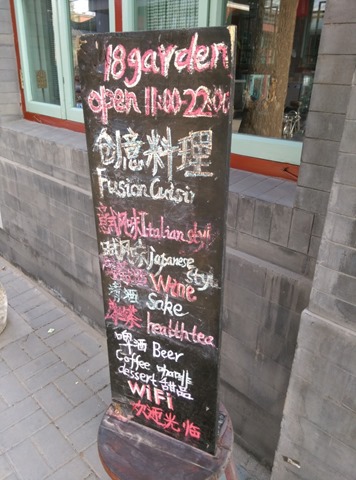 18garden
open 11:00-22:00
创意料理
Fusion Cuisi
意风味Italian styl
japanese
style
Wine
清酒 Sake
草茶 health tea
啤酒 Beer
Coffee 咖啡
dessert 甜品
WiFi
欢迎光临